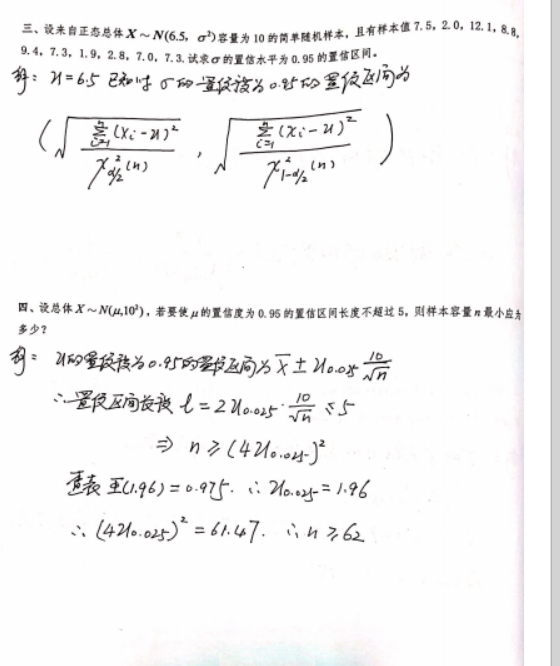 三、设来自正态总体X～N(6.5, σ²)容量为10的简单随机样本，且有样本值7.5, 2.0, 12.1, 8.8,
9.4, 7.3, 1.9, 2.8, 7.0, 7.3.试求σ的置信水平为0.95的置信区间。
解：u=6.5 已知时 σ的置信度为0.95的置信区间为
(√(∑ᵢ₌₁ⁿ(Xᵢ-u)² / χ²_{α/2}(n)) , √(∑ᵢ₌₁ⁿ(Xᵢ-u)² / χ²_{1-α/2}(n)))
四、设总体X～N(μ,10²)，若要使μ的置信度为0.95的置信区间长度不超过5，则样本容量n最小应为
多少？
解：u的置信度为0.95的置信区间为 X̄ ± u₀.₀₂₅ 10/√n
∴置信区间长度 l = 2u₀.₀₂₅ · 10/√n ≤ 5
⇒ n ≥ (4u₀.₀₂₅)²
查表 Φ(1.96) = 0.975. ∴ u₀.₀₂₅ = 1.96
∴ (4u₀.₀₂₅)² = 61.47. ∴ n ≥ 62